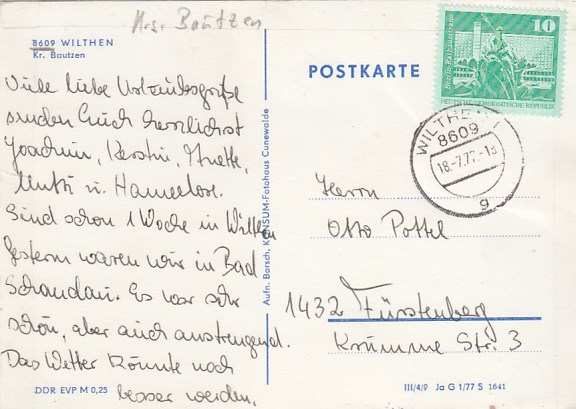 Krs. Bautzen
8609 WILTHEN
Kr. Bautzen
Viele liebe Urlaubsgrüße
senden Euch herzlichst
Joachim, Kerstin, Anette,
Mutti u. Hannelore.
Sind schon 1 Woche in Wilthen
Gestern waren wir in Bad
Schandau. Es war sehr
schön, aber auch anstrengend.
Das Wetter könnte noch
besser werden.
DDR EVP M 0,25
Aufn. Borsch, KONSUM-Fotohaus Cunewalde
POSTKARTE
10
DEUTSCHE DEMOKRATISCHE REPUBLIK
WILTHEN
8609
18.-7.77.-18
g
Herrn
Otto Pottel
1432 Fürstenberg
Krumme Str. 3
III/4/9 Ja G 1/77 S 1641